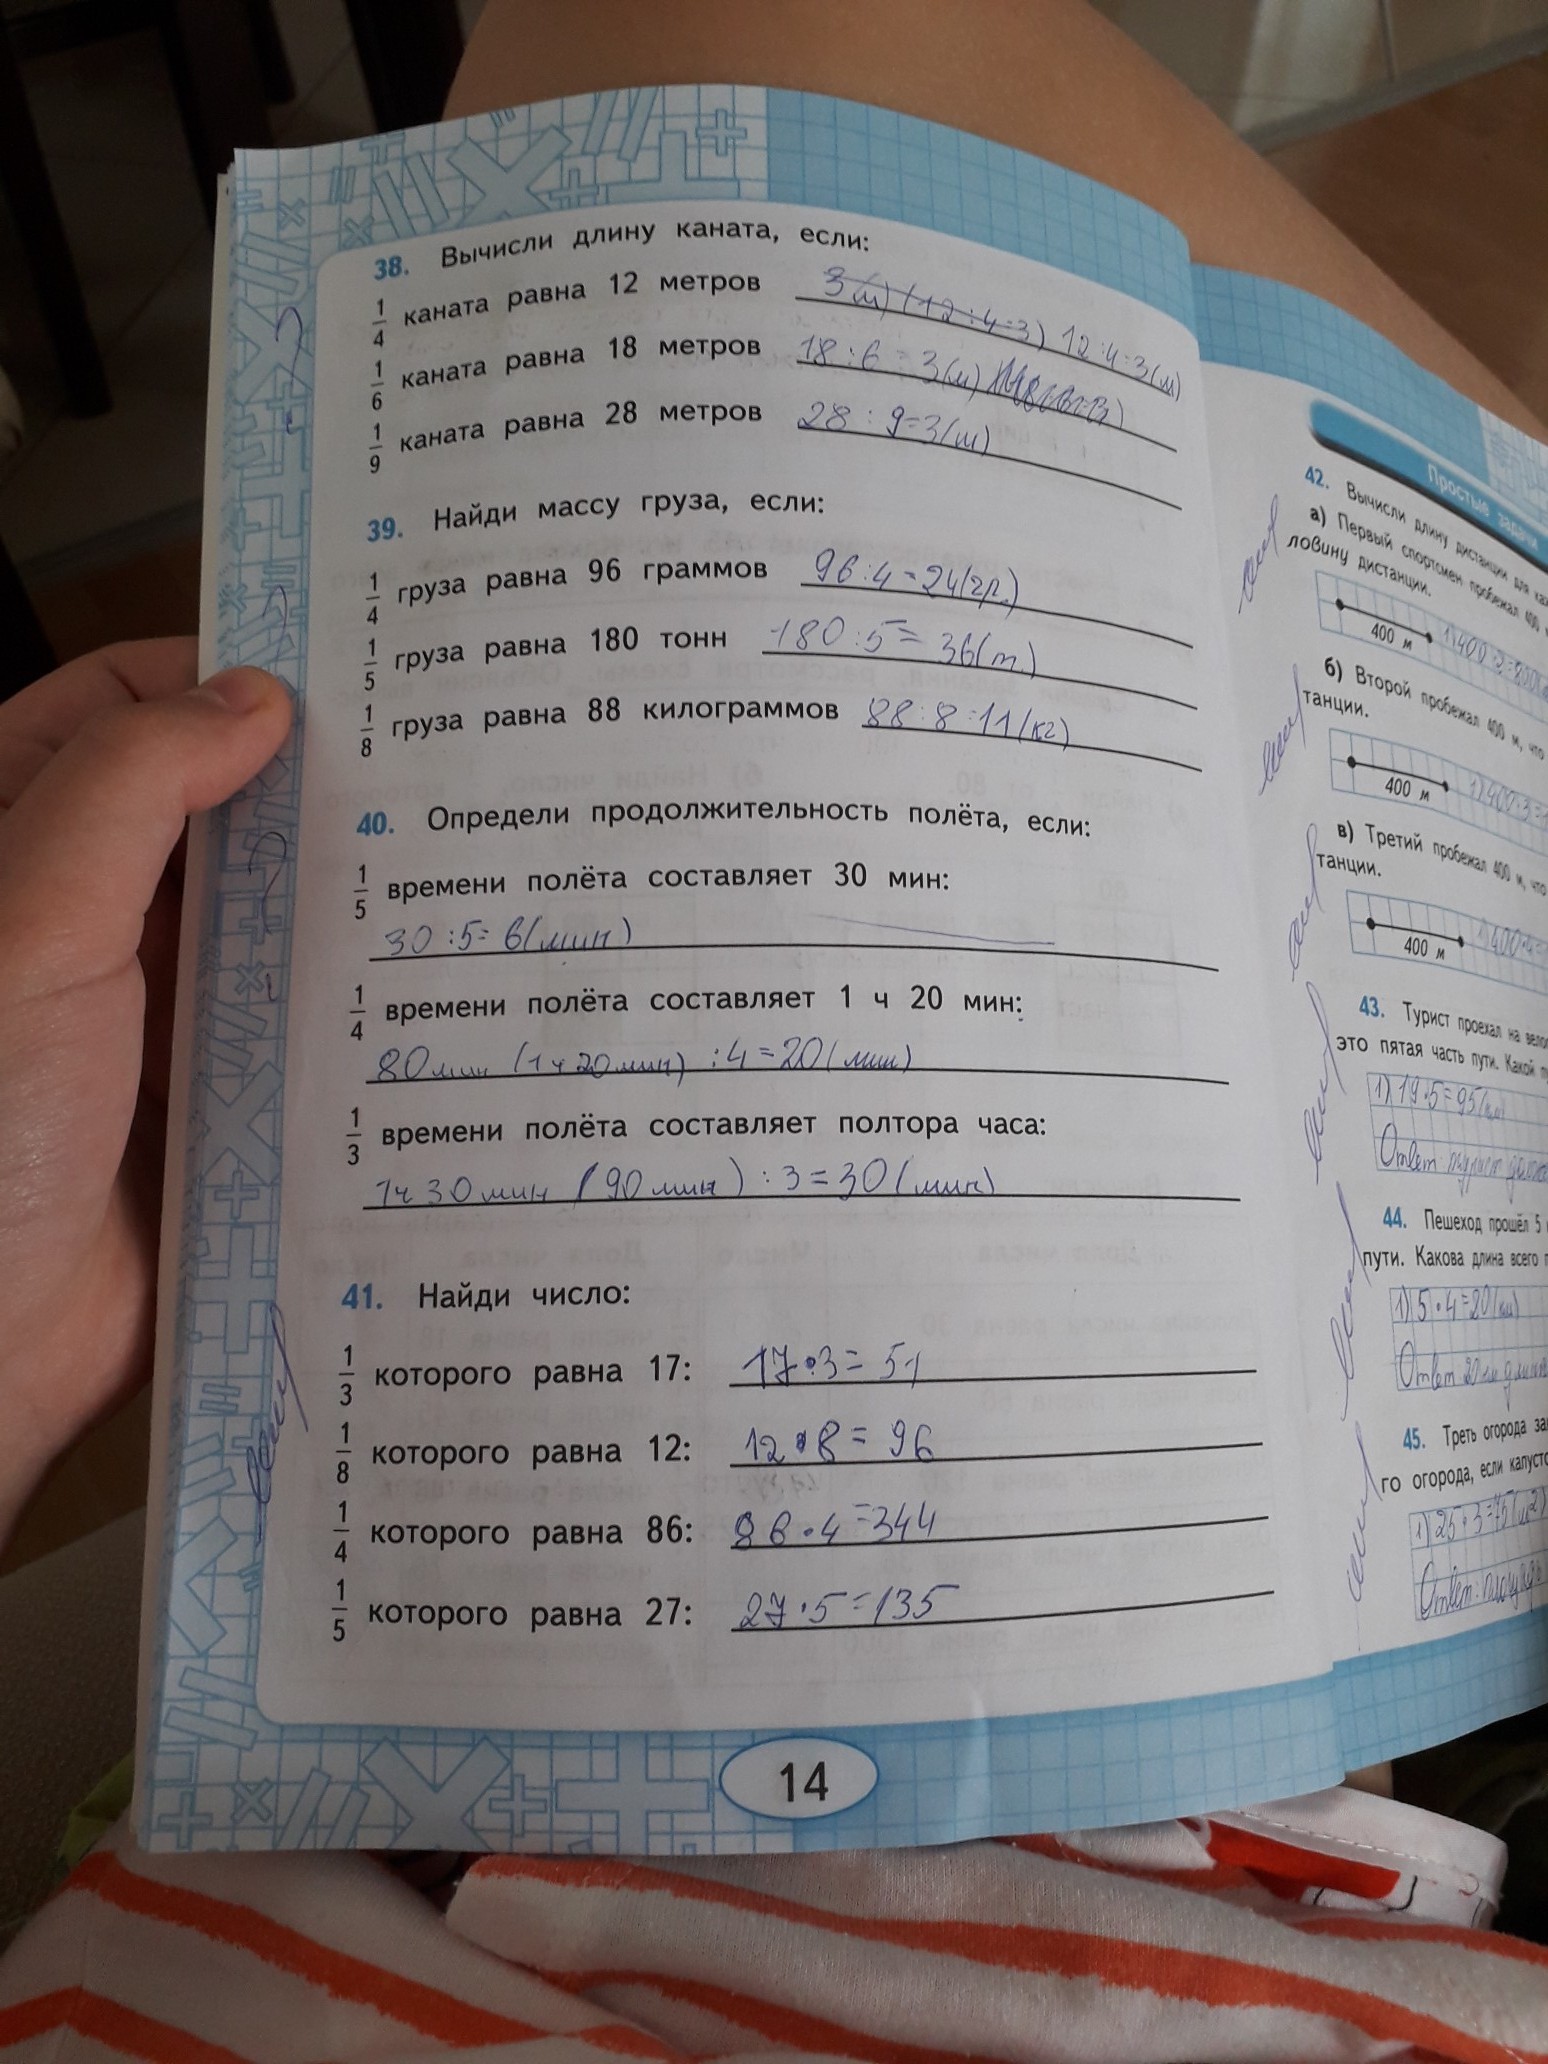 38. Вычисли длину каната, если:
1/4 каната равна 12 метров 3(м) (12:4=3) 12:4=3(м)
1/6 каната равна 18 метров 18:6=3(м)
1/9 каната равна 28 метров 28:9=3(м)
39. Найди массу груза, если:
1/4 груза равна 96 граммов 96:4=24(гр.)
1/5 груза равна 180 тонн 180:5=36(т.)
1/8 груза равна 88 килограммов 88:8=11(кг)
40. Определи продолжительность полёта, если:
1/5 времени полёта составляет 30 мин:
30:5=6(мин)
1/4 времени полёта составляет 1 ч 20 мин:
80мин (1ч20мин) :4=20(мин)
1/3 времени полёта составляет полтора часа:
1ч30мин (90мин) :3=30(мин)
41. Найди число:
1/3 которого равна 17: 17·3=51
1/8 которого равна 12: 12·8=96
1/4 которого равна 86: 86·4=344
1/5 которого равна 27: 27·5=135
14
Простые задачи
42. Вычисли длину дистанции для
а) Первый спортсмен пробежал 400
ловину дистанции.
400 м 1)400·2=800
б) Второй пробежал 400 м, что
танции.
400 м 1)400·3=
в) Третий пробежал 400 м, что
танции.
400 м 1)400·4=
43. Турист проехал на
это пятая часть пути. Какой
1)19·5=95(км)
Ответ: турист
44. Пешеход прошёл 5
пути. Какова длина всего
1)5·4=20(км)
Ответ 20 км длина
45. Треть огорода
го огорода, если
1)25·3=75(м2)
Ответ: площадь